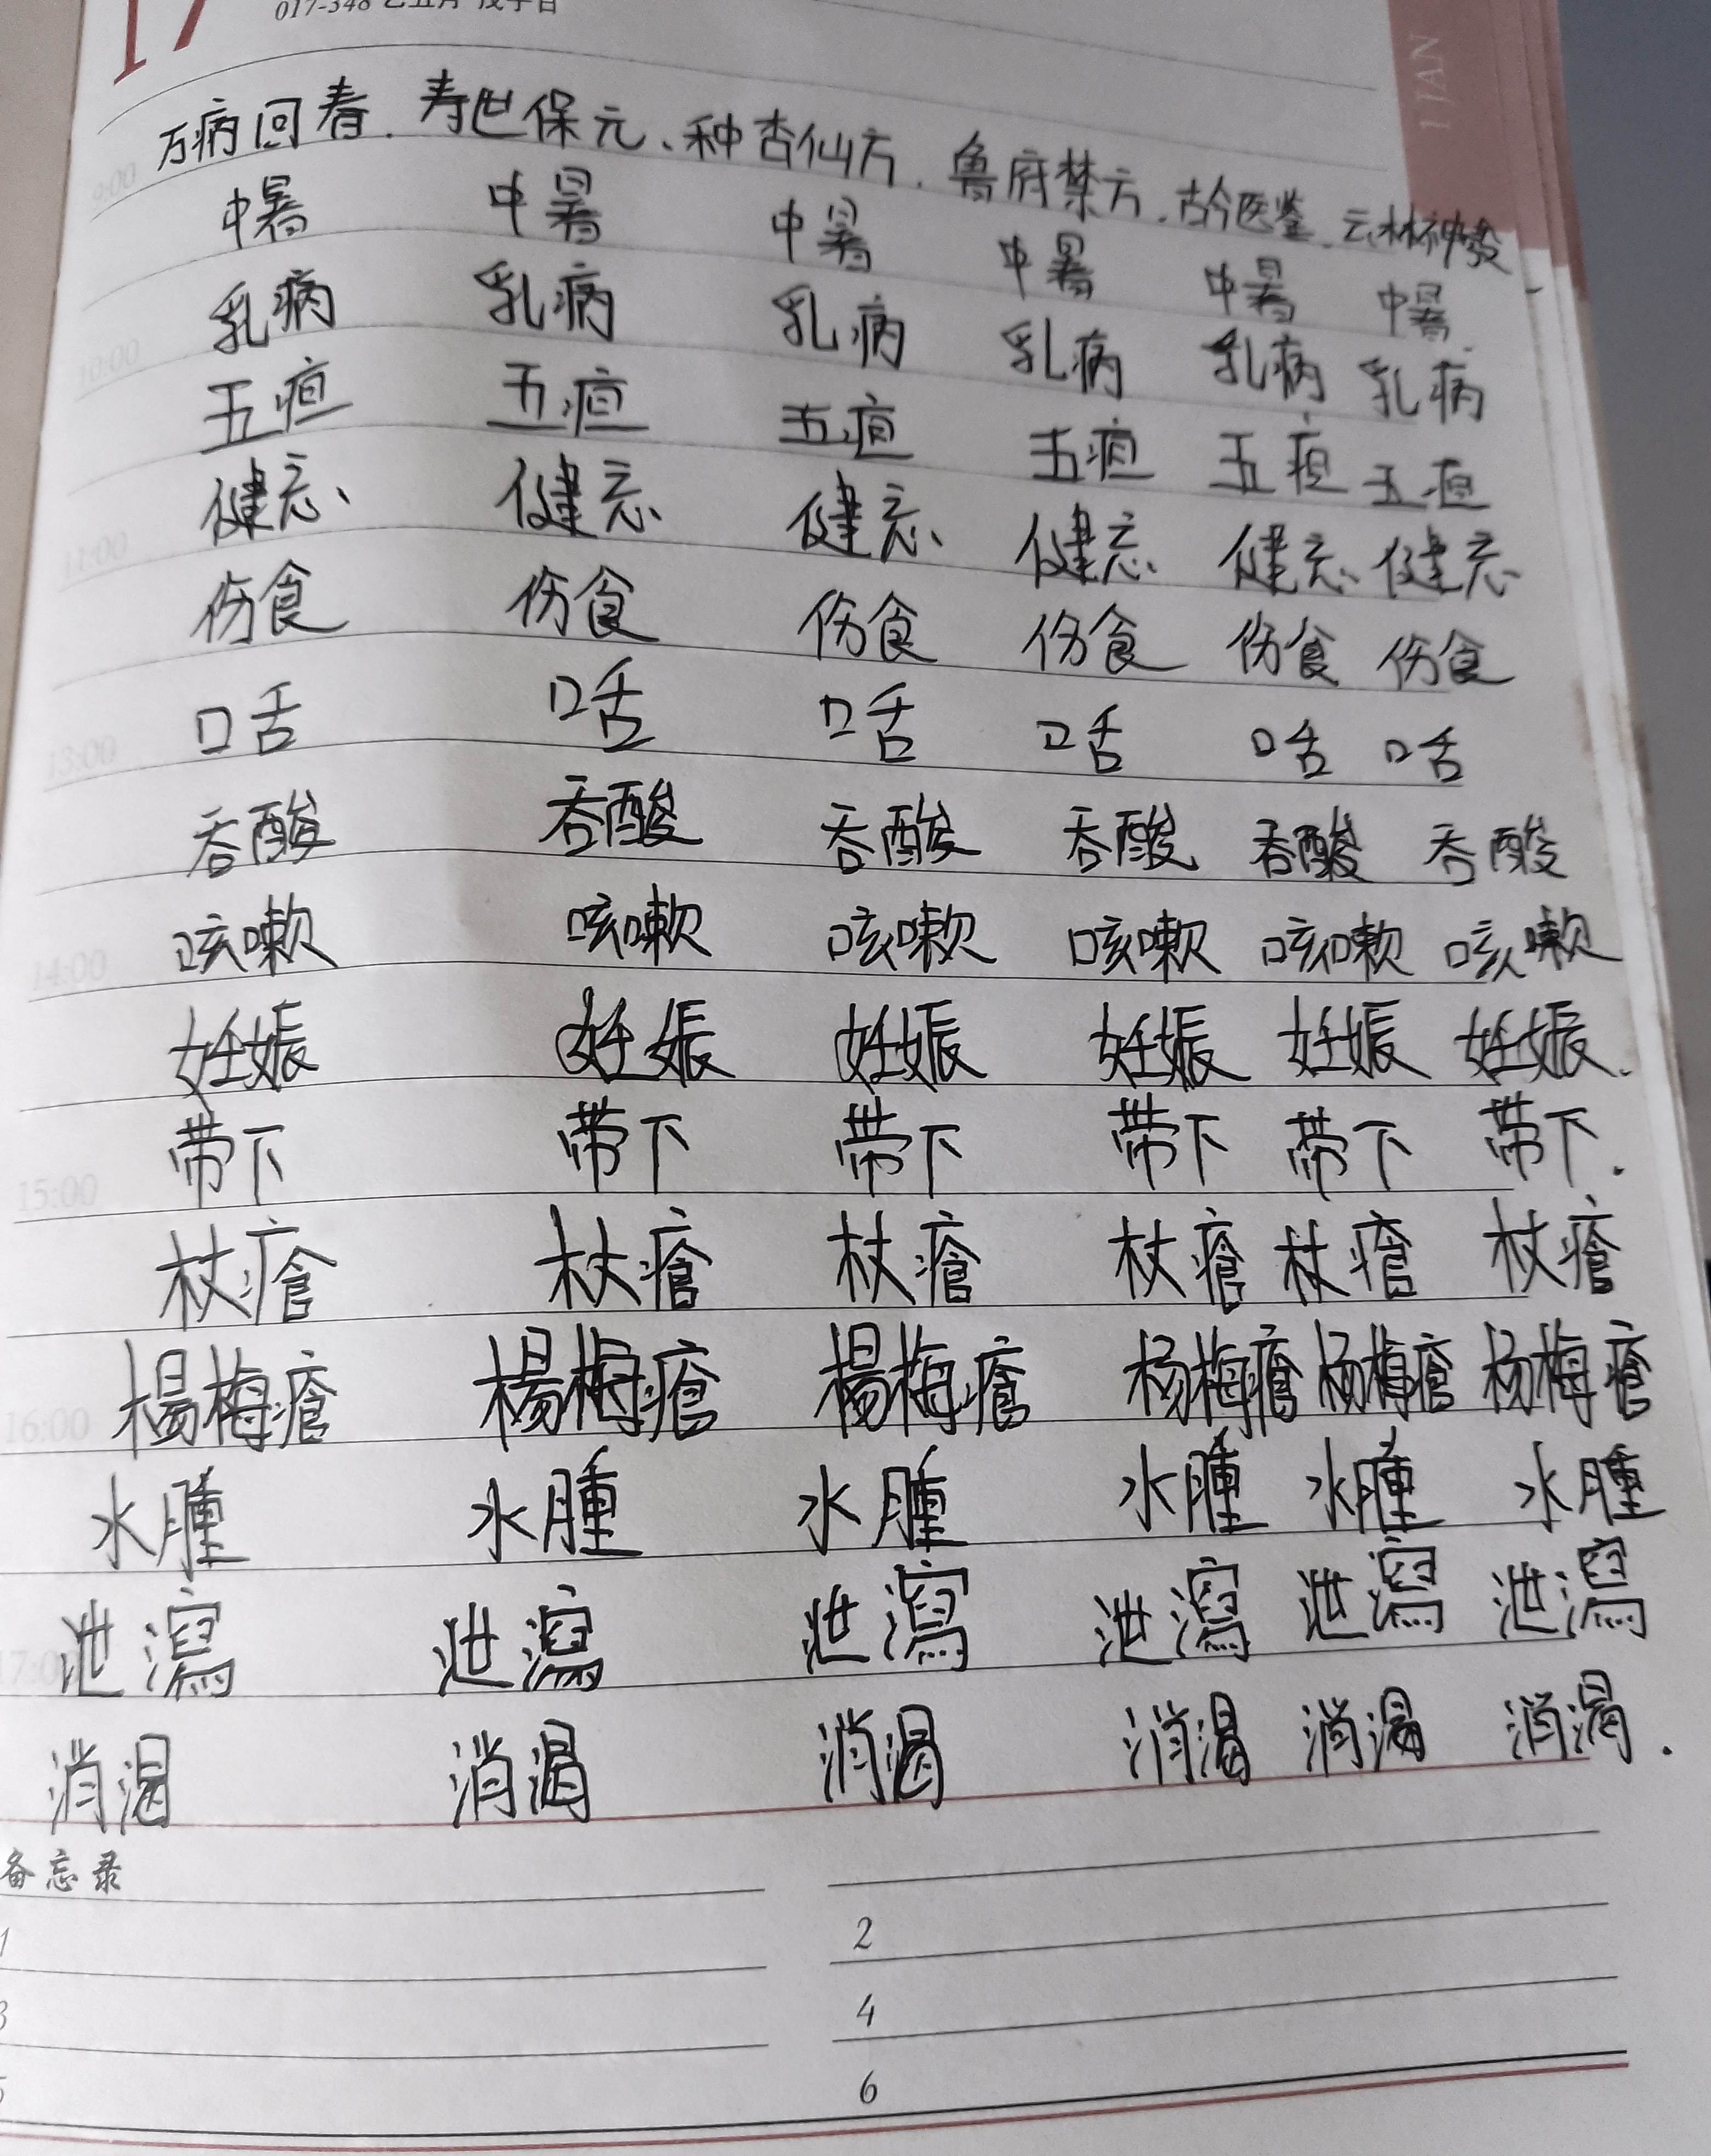 17 017-348
1 JAN
万病回春、寿世保元、种杏仙方、鲁府禁方、古今医鉴、云林神彀
9:00
中暑 中暑 中暑 中暑 中暑 中暑
乳病 乳病 乳病 乳病 乳病 乳病
10:00
五疸 五疸 五疸 五疸 五疸 五疸
健忘 健忘 健忘 健忘 健忘 健忘
11:00
伤食 伤食 伤食 伤食 伤食 伤食
口舌 口舌 口舌 口舌 口舌 口舌
13:00
吞酸 吞酸 吞酸 吞酸 吞酸 吞酸
咳嗽 咳嗽 咳嗽 咳嗽 咳嗽 咳嗽
14:00
妊娠 妊娠 妊娠 妊娠 妊娠 妊娠.
带下 带下 带下 带下 带下 带下.
15:00
杖瘡 杖瘡 杖瘡 杖瘡 杖瘡 杖瘡
楊梅瘡 楊梅瘡 楊梅瘡 杨梅瘡 杨梅瘡 杨梅瘡
16:00
水腫 水腫 水腫 水腫 水腫 水腫
泄瀉 泄瀉 泄瀉 泄瀉 泄瀉 泄瀉
17:00
消渴 消渴 消渴 消渴 消渴 消渴.
备忘录
1 2
3 4
5 6